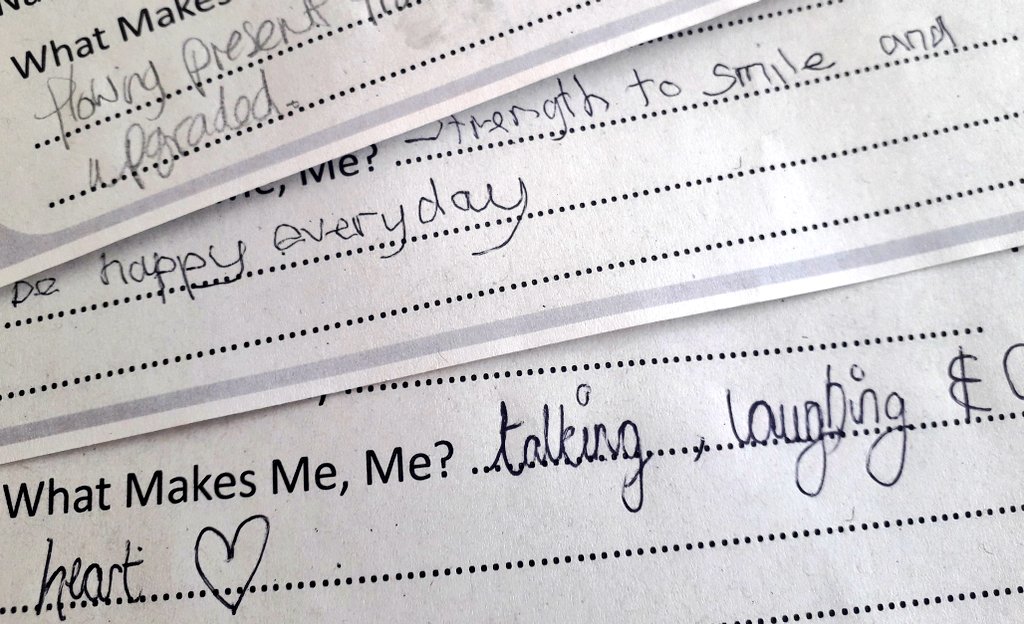 What Makes
flowing present
upgraded.
Me? Strength to smile and
be happy everyday
What Makes Me, Me? talking, laughing &
heart ♡